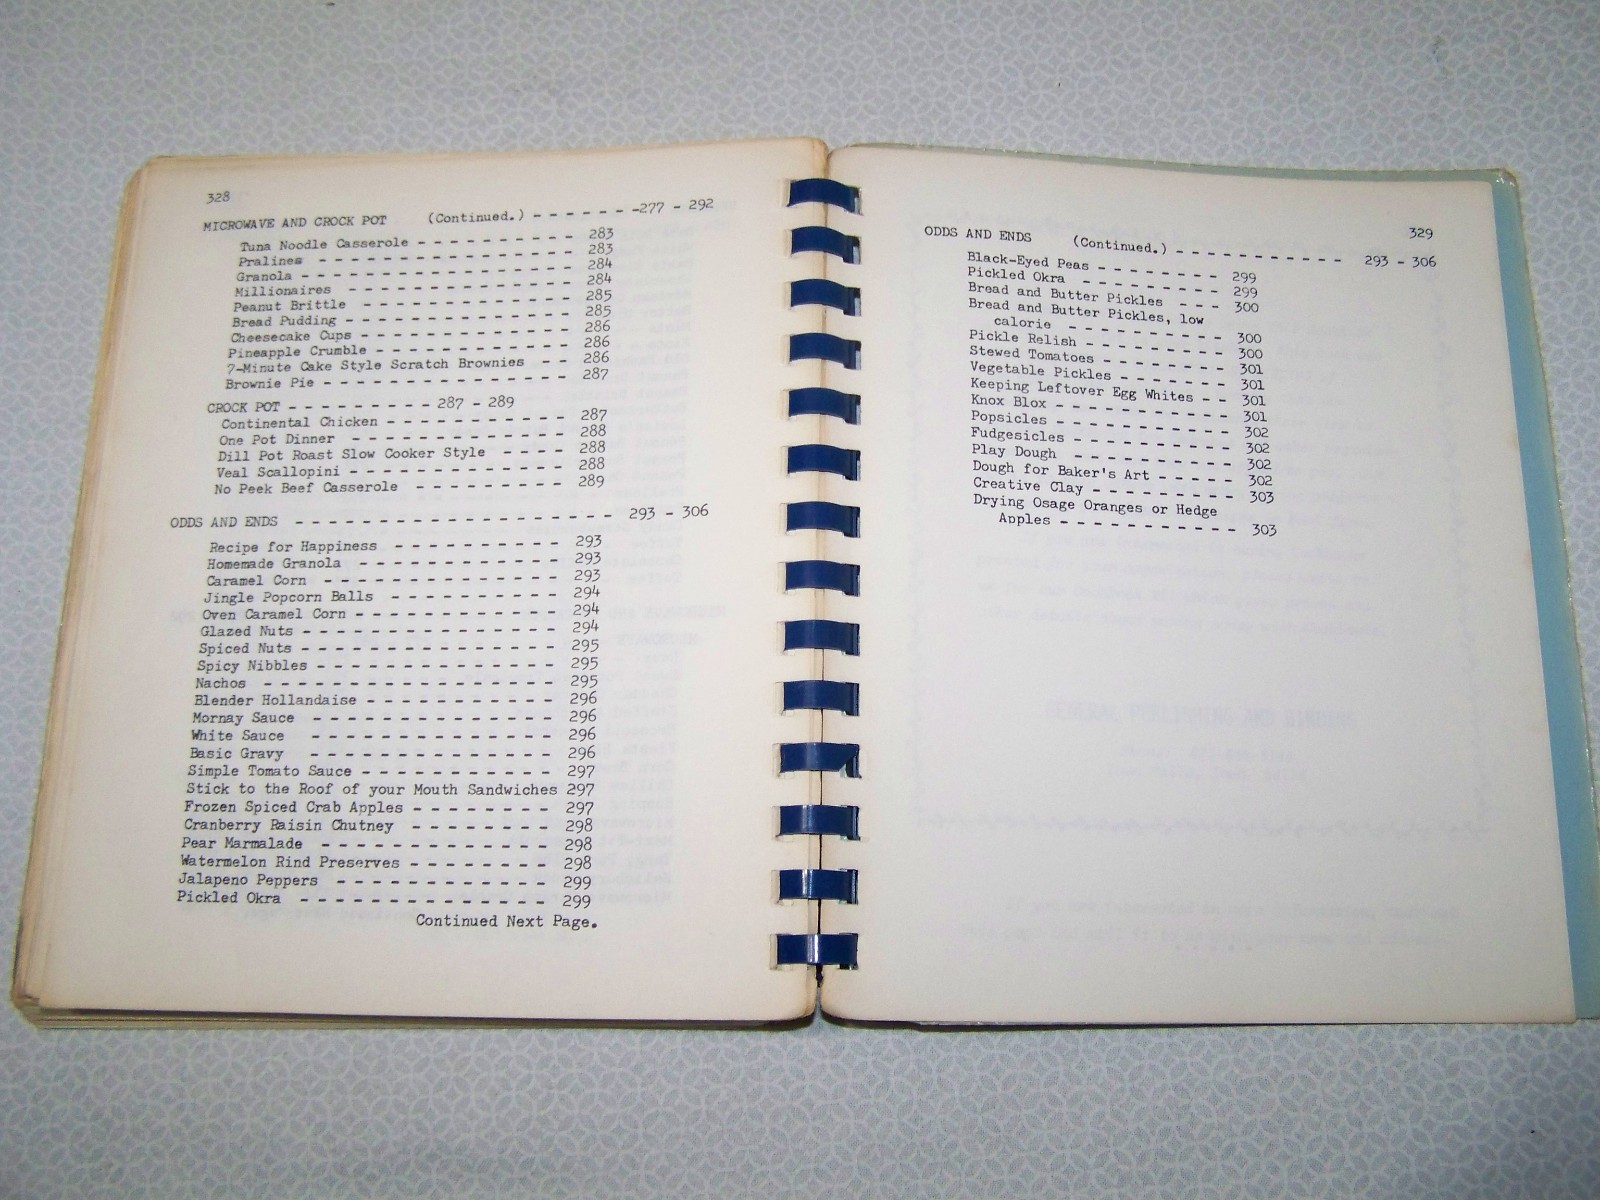 328
MICROWAVE AND CROCK POT (Continued.) - - - - - - -277 - 292
Tuna Noodle Casserole - - - - - - - - - - 283
Pralines - - - - - - - - - - - - - - - - 283
Granola - - - - - - - - - - - - - - - - - 284
Millionaires - - - - - - - - - - - - - - 284
Peanut Brittle - - - - - - - - - - - - - 285
Bread Pudding - - - - - - - - - - - - - - 285
Cheesecake Cups - - - - - - - - - - - - - 286
Pineapple Crumble - - - - - - - - - - - - 286
7-Minute Cake Style Scratch Brownies - - 286
Brownie Pie - - - - - - - - - - - - - - - 287
CROCK POT - - - - - - - - - 287 - 289
Continental Chicken - - - - - - - - - - - 287
One Pot Dinner - - - - - - - - - - - - - 288
Dill Pot Roast Slow Cooker Style - - - - 288
Veal Scallopini - - - - - - - - - - - - - 288
No Peek Beef Casserole - - - - - - - - - 289
ODDS AND ENDS - - - - - - - - - - - - - - - - - - - 293 - 306
Recipe for Happiness - - - - - - - - - - 293
Homemade Granola - - - - - - - - - - - - 293
Caramel Corn - - - - - - - - - - - - - - 293
Jingle Popcorn Balls - - - - - - - - - - 294
Oven Caramel Corn - - - - - - - - - - - - 294
Glazed Nuts - - - - - - - - - - - - - - - 294
Spiced Nuts - - - - - - - - - - - - - - - 295
Spicy Nibbles - - - - - - - - - - - - - - 295
Nachos - - - - - - - - - - - - - - - - - 295
Blender Hollandaise - - - - - - - - - - - 296
Mornay Sauce - - - - - - - - - - - - - - 296
White Sauce - - - - - - - - - - - - - - 296
Basic Gravy - - - - - - - - - - - - - - 296
Simple Tomato Sauce - - - - - - - - - - - 297
Stick to the Roof of your Mouth Sandwiches 297
Frozen Spiced Crab Apples - - - - - - - - 297
Cranberry Raisin Chutney - - - - - - - - 298
Pear Marmalade - - - - - - - - - - - - - 298
Watermelon Rind Preserves - - - - - - - - 298
Jalapeno Peppers - - - - - - - - - - - - 299
Pickled Okra - - - - - - - - - - - - - - 299
Continued Next Page.
329
ODDS AND ENDS (Continued.) - - - - - - - - - - - - 293 - 306
Black-Eyed Peas - - - - - - - - 299
Pickled Okra - - - - - - - - - 299
Bread and Butter Pickles - - - 300
Bread and Butter Pickles, low
calorie - - - - - - - - - - 300
Pickle Relish - - - - - - - - - 300
Stewed Tomatoes - - - - - - - - 301
Vegetable Pickles - - - - - - - 301
Keeping Leftover Egg Whites - - 301
Knox Blox - - - - - - - - - - - 301
Popsicles - - - - - - - - - - - 302
Fudgesicles - - - - - - - - - - 302
Play Dough - - - - - - - - - - 302
Dough for Baker's Art - - - - - 302
Creative Clay - - - - - - - - - 303
Drying Osage Oranges or Hedge
Apples - - - - - - - - - - - 303